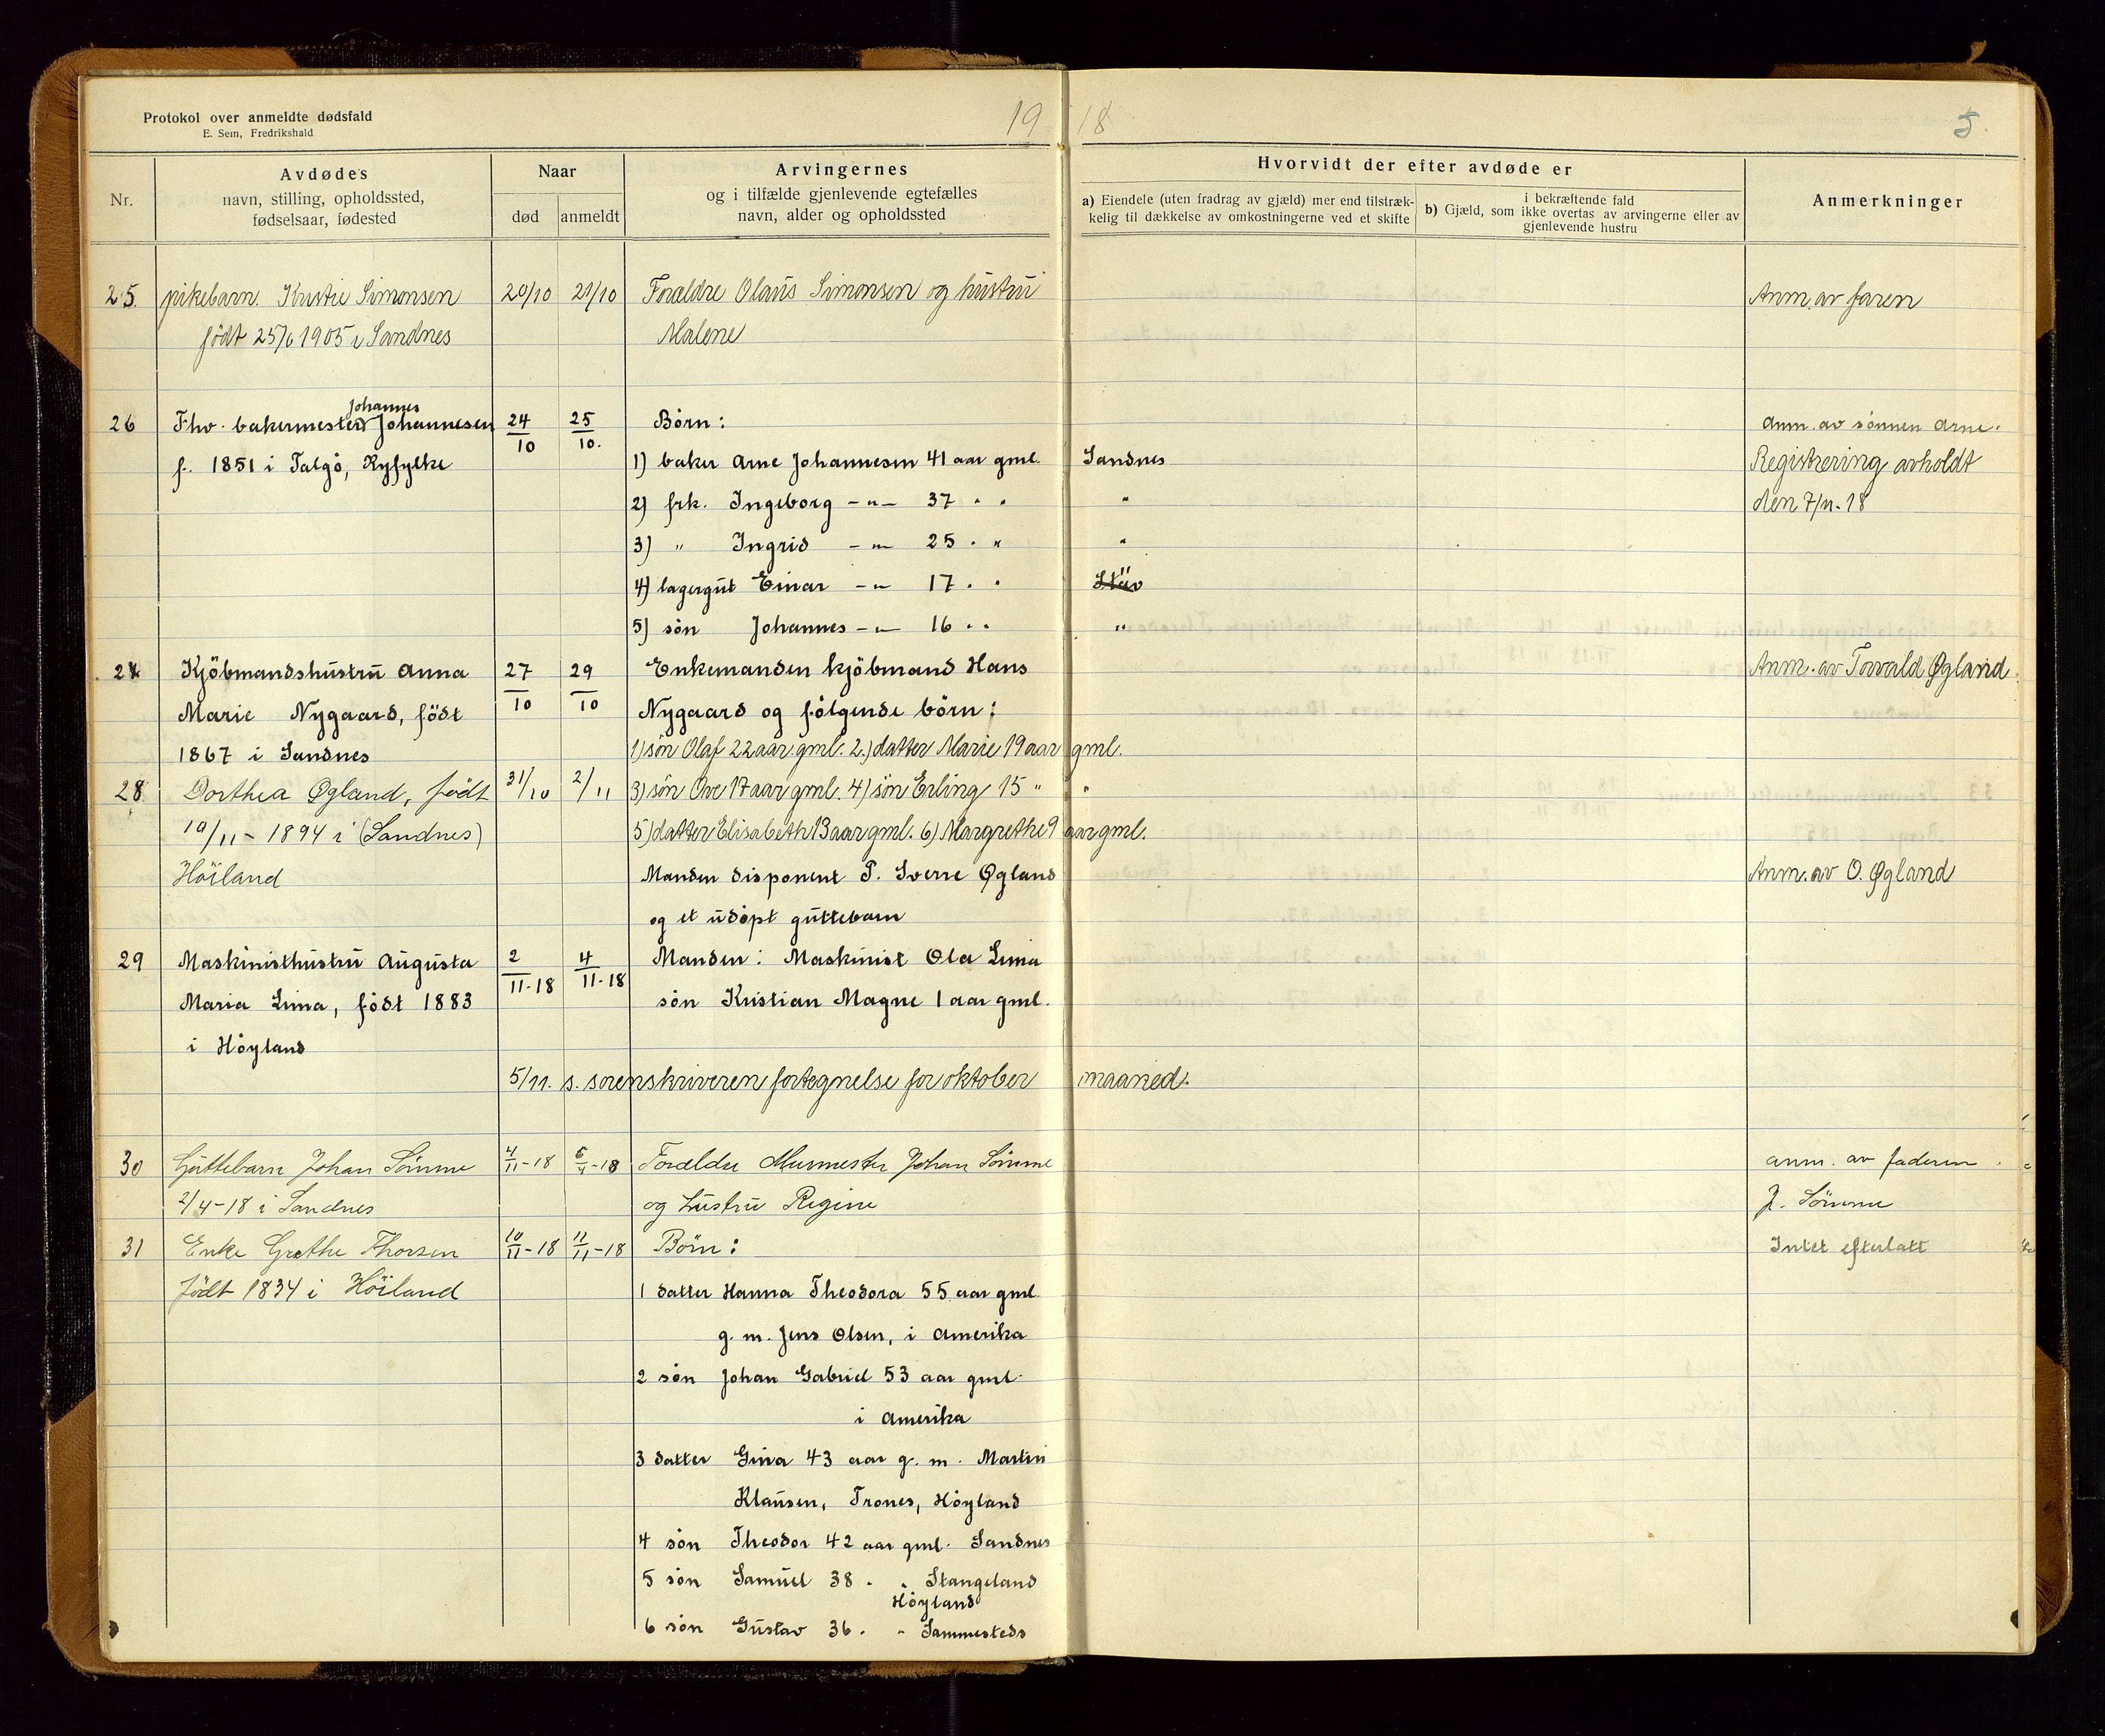 Protokol over anmeldte dødsfald
E. Sem, Fredrikshald
19 18
5.
Nr.
Avdødes
navn, stilling, opholdssted,
fødselsaar, fødested
Naar
død
anmeldt
Arvingernes
og i tilfælde gjenlevende egtefælles
navn, alder og opholdssted
Hvorvidt der efter avdøde er
a) Eiendele (uten fradrag av gjæld) mer end tilstræk-
kelig til dækkelse av omkostningerne ved et skifte
i bekræftende fald
b) Gjæld, som ikke overtas av arvingerne eller av
gjenlevende hustru
Anmerkninger
25. pikebarn. Kristie Simonsen 20/10 21/10 Forældre Olaus Simonsen og hustru Anm. av faren
født 25/6 1905 i Sandnes Malene
Johannes
26 Fhv. bakermester Johannesen 24/10 25/10. Børn: Anm. av sønnen Arne.
f. 1851 i Talgö, Ryfylke 1) baker Arne Johannesen 41 aar gml. Sandnes Registrering avholdt
2) frk. Ingeborg -"- 37 " " " den 7/11-18
3) " Ingrid -"- 25 " " "
4) lagergut Einar -"- 17 " " Stav "
5) søn Johannes -"- 16 " " "
27 Kjöbmandshustru Anna 27/10 29/10 Enkemanden kjöbmand Hans Anm. av Torvald Øgland.
Marie Nygaard, født Nygaard og følgende børn:
1867 i Sandnes 1) søn Olaf 22 aar gml. 2.) datter Marie 19 aar gml.
28 Dorthea Øgland, født 31/10 2/11 3) søn Ove 17 aar gml. 4) søn Erling 15 " "
19/11 - 1894 i (Sandnes) 5) datter Elisabeth 13 aar gml. 6) Margrethe 9 aar gml.
Höiland Manden disponent P. Sverre Øgland Anm. av O. Øgland
og et udöpt guttebarn
29 Maskinisthustru Augusta 2/11-18 4/11-18 Manden: Maskinist Ola Lima
Maria Lima, födt 1883 søn Kristian Magne 1 aar gml.
i Höyland
5/11. s. sorenskriveren fortegnelse for oktober maaned.
30 Guttebarn Johan Sömme 4/11-18 5/11-18 Forældre Murmester Johan Sömme anm. av faderen
2/4-18 i Sandnes og hustru Regine J. Sömme
31 Enke Grethe Thorsen 10/11-18 11/11-18 Börn: Intet efterlatt
födt 1834 i Höiland 1 datter Hanna Theodora 55 aar gml.
g. m. Jens Olsen, i Amerika
2 søn Johan Gabriel 53 aar gml.
i Amerika
3 datter Gina 43 aar g. m. Martin
Klausen, Trones, Höyland
4 søn Theodor 42 aar gml. Sandnes
5 søn Samuel 38 " " Stangeland
Höyland
6 søn Gustav 36 " " Sammesteds